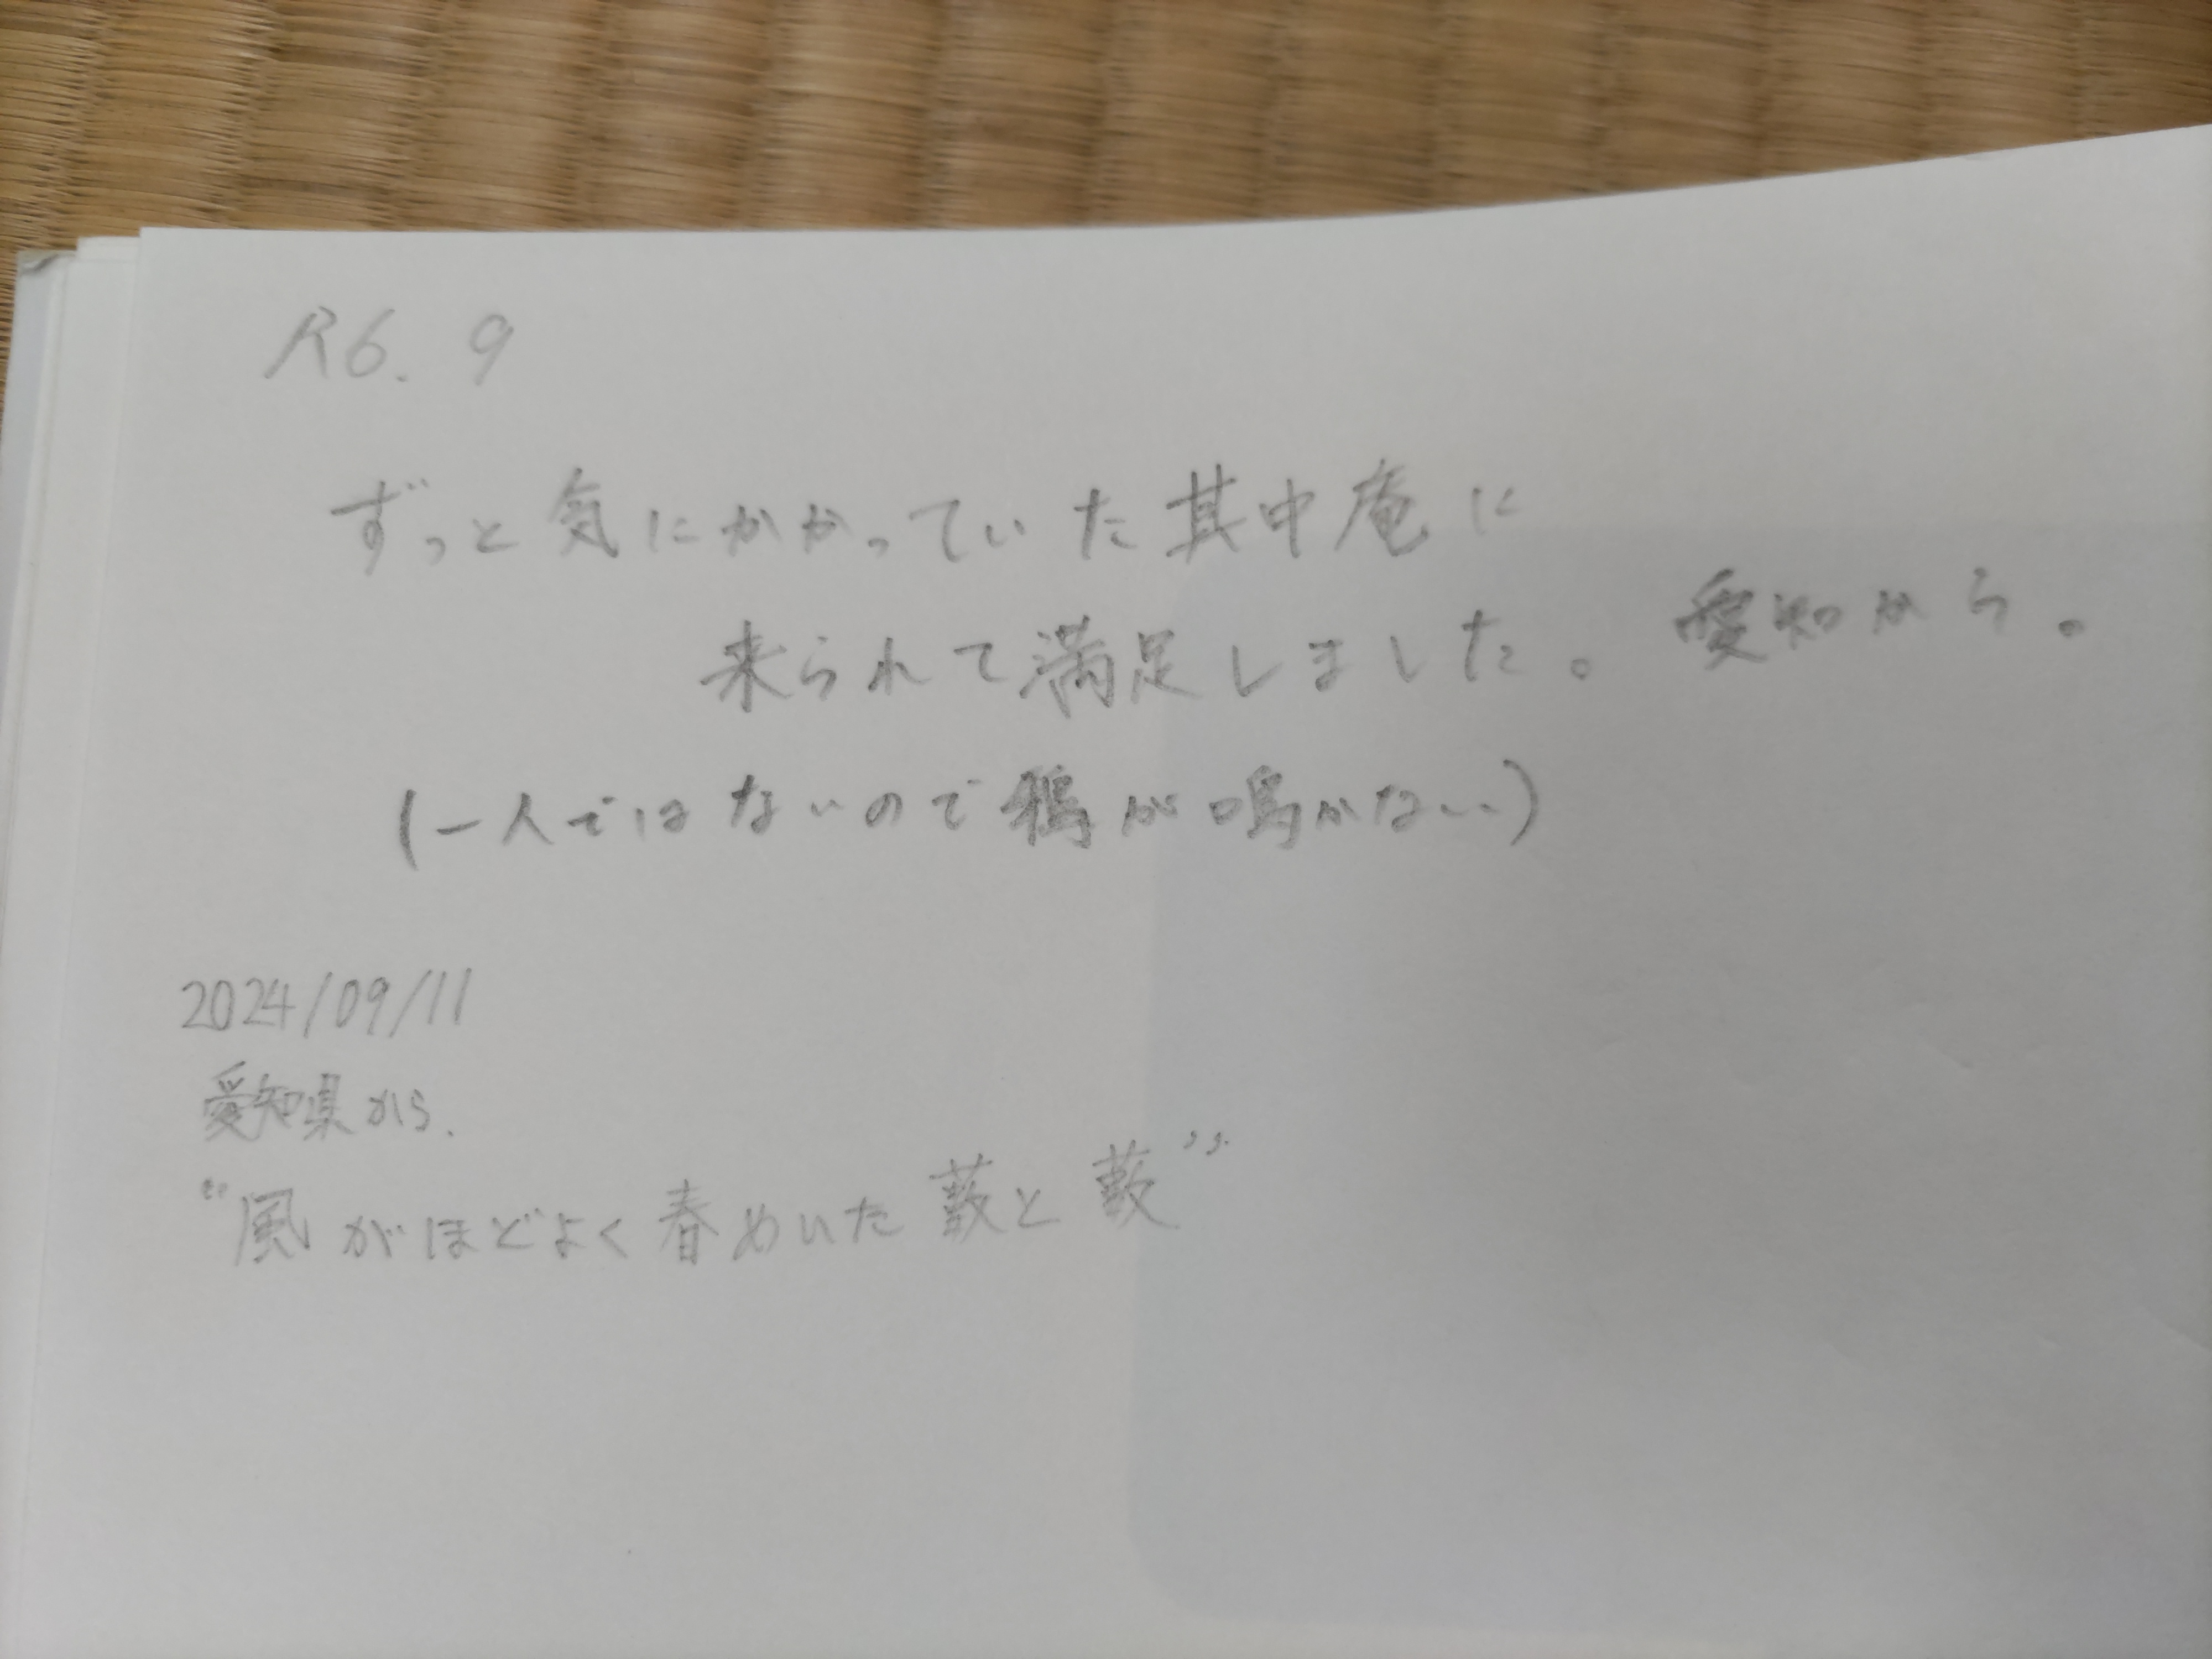 R6. 9
ずっと気にかかっていた其中庵に
来られて満足しました。愛知から。
(一人ではないので鴉が鳴かない)
2024/09/11
愛知県から.
“風がほどよく春めいた藪と藪”